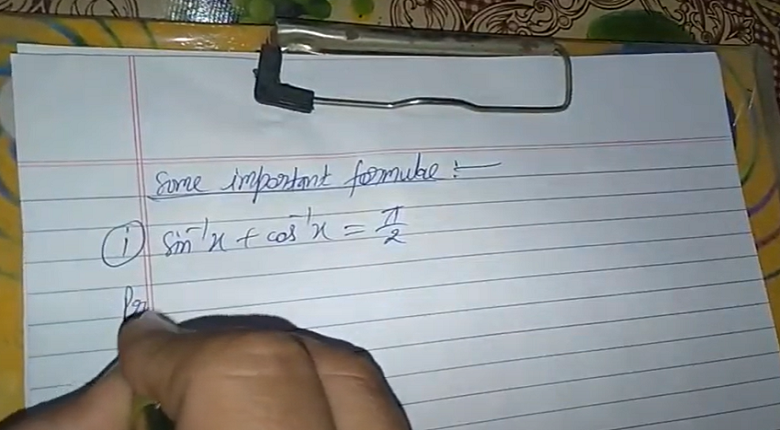 Some important formulae :—
(i) sin⁻¹x + cos⁻¹x = π/2